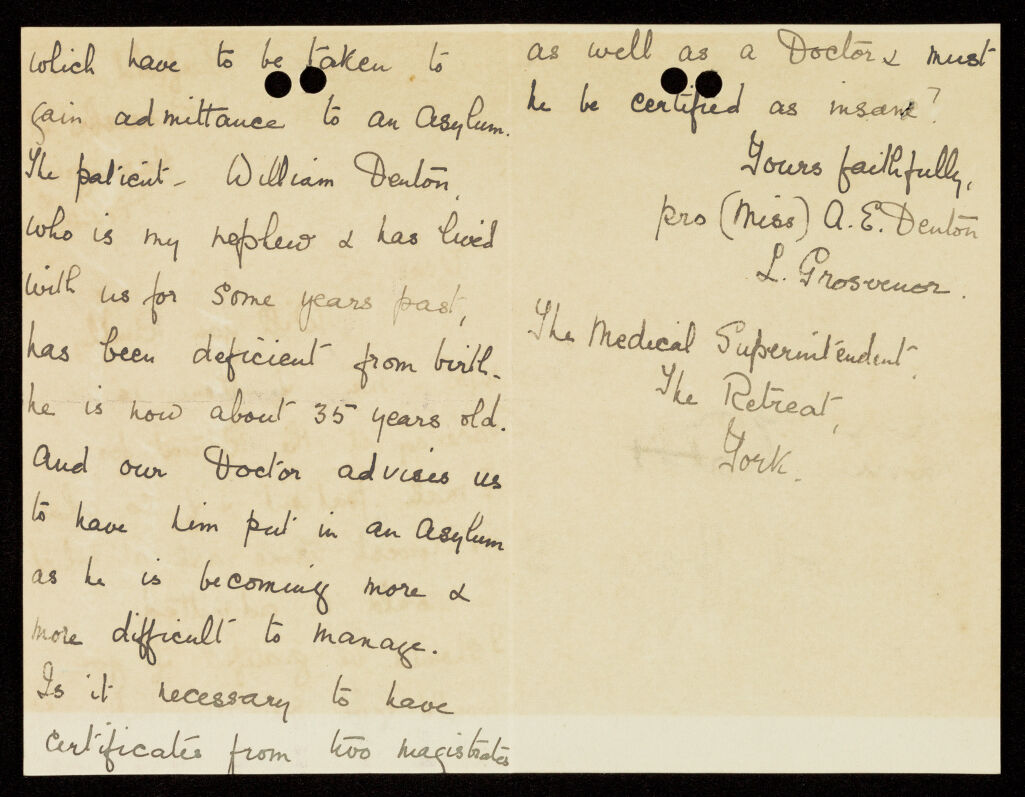 which have to be taken to
gain admittance to an Asylum.
The patient - William Denton,
who is my nephew & has lived
with us for some years past,
has been deficient from birth -
he is now about 35 years old.
And our Doctor advises us
to have him put in an Asylum
as he is becoming more &
more difficult to manage.
Is it necessary to have
certificates from two magistrates
as well as a Doctor & must
he be certified as insane?
Yours faithfully,
pro (Miss) A. E. Denton
L. Grosvenor.
The Medical Superintendent.
The Retreat,
York.